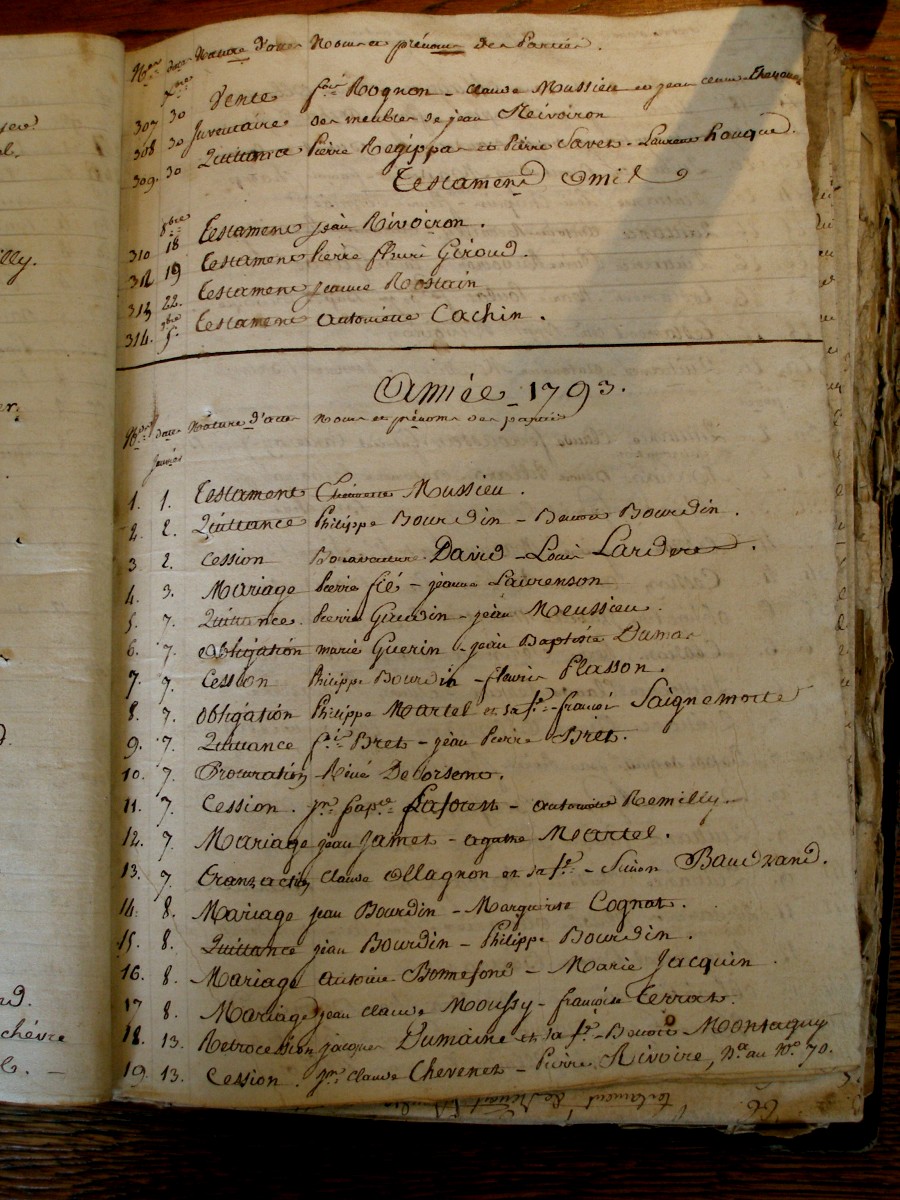 Nos dates Nature d'actes Noms et prénoms des Parties.
7bre
307 30 Vente fois Rognon - Claude Mussieu et jean claude
308 30 Inventaire des meubles de jean Reivoiron
309. 30 Quittance Pierre Regippas et Pierre Savet - Laurent Fouque.
Testament Omis
8bre
310 18 Testament jean Rivoiron.
312 19 Testament Pierre fleuri Giroud.
313 22. Testament jeanne Rostain
9bre
314. 5. Testament antoinette Cachin.
Année 1793.
Nos dates Nature d'actes Noms et prénoms des parties
janvier
1. 1. Testament Mussieu.
2. 2. Quittance Philippe Bourdin - Benoit Bourdin.
3 2. Cession Bonaventure David - Louis
4. 3. Mariage Pierre fié - jeanne Laurenson
5. 7. Quittance Pierre Gaudin - jean Meussieu.
6. 7. Obligation marie Guerin - jean Baptiste Dumas
7. 7. Cession Philippe Bourdin - fleurie Plasson.
8. 7. Obligation Philippe Martel et sa fe - françois Saignemorte
9. 7. Quittance fois Bret - jean Pierre Bret.
10. 7. Procuration René
11. 7. Cession. jn bapte Laforest - antoinette Remilly.
12. 7. Mariage jean Jamet - agathe Martel.
13. 7. Tranzaction Claude Ollagnon et sa fe - Simon Baudrand.
14. 8. Mariage jean Bourdin - Marguerite Cognat.
15. 8. Quittance jean Bourdin - Philippe Bourdin.
16. 8. Mariage antoine Bonnefond - Marie Jacquin.
17 8. Mariage jean claude Moussy - françoise Terrat.
18. 13. Retrocession jacques Dumaine et sa fe - Benoit Montagny
19. 13. Cession. jn claude Chevenet - Pierre Rivoire, na au No 70.
illy.
nd.
chévre